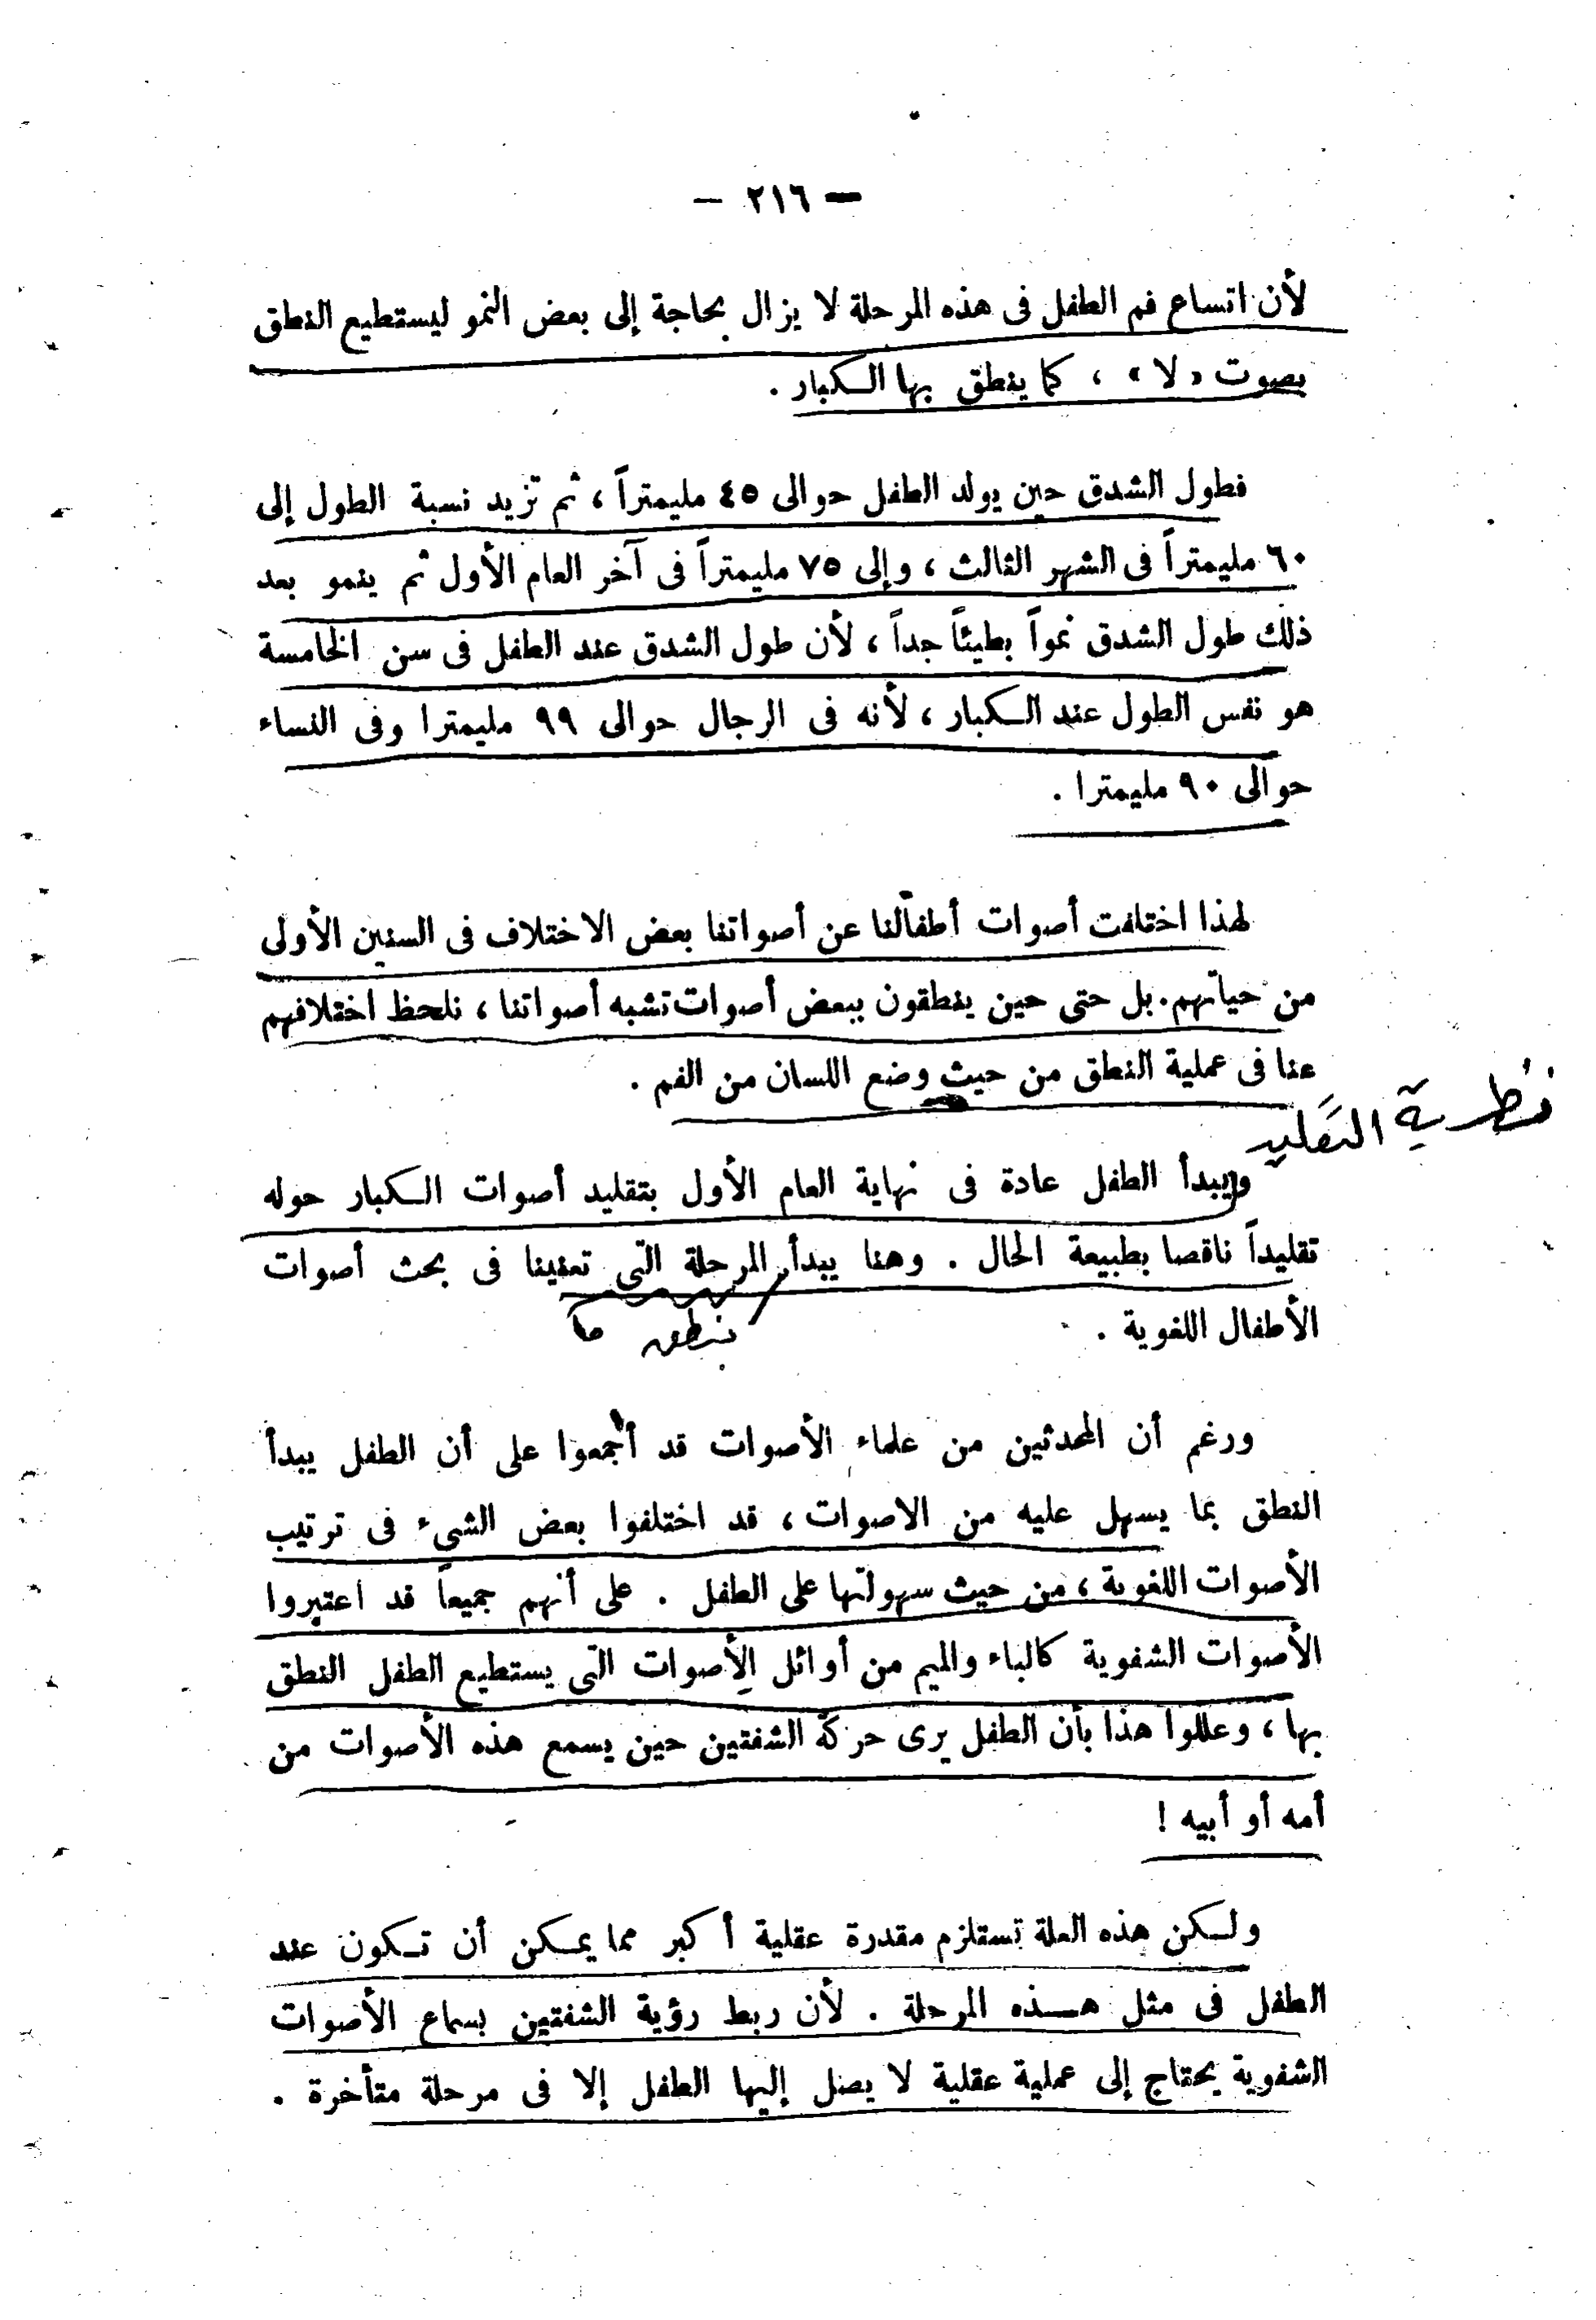 — ٢١٦ —
لأن اتساع فم الطفل فى هذه المرحلة لا يزال بحاجة إلى بعض النمو ليستطيع النطق
بصوت « لا » ، كما ينطق بها الكبار .
فطول الشدق حين يولد الطفل حوالى ٤٥ مليمتراً ، ثم تزيد نسبة الطول إلى
٦٠ مليمتراً فى الشهر الثالث ، وإلى ٧٥ مليمتراً فى آخر العام الأول ثم ينمو بعد
ذلك طول الشدق نمواً بطيئاً جداً ، لأن طول الشدق عند الطفل فى سن الخامسة
هو نفس الطول عند الكبار ، لأنه فى الرجال حوالى ٩٩ مليمترا وفى النساء
حوالى ٩٠ مليمترا .
لهذا اختلفت أصوات أطفالنا عن أصواتنا بعض الاختلاف فى السنين الأولى
من حياتهم . بل حتى حين ينطقون ببعض أصوات تشبه أصواتنا ، نلحظ اختلافهم
عنا فى عملية النطق من حيث وضع اللسان من الفم .
نظرية التقليد
ويبدأ الطفل عادة فى نهاية العام الأول بتقليد أصوات الكبار حوله
تقليداً ناقصا بطبيعة الحال . وهنا يبدأ المرحلة التى تعنينا فى بحث أصوات
الأطفال اللغوية .
ورغم أن المحدثين من علماء الأصوات قد أجمعوا على أن الطفل يبدأ
النطق بما يسهل عليه من الاصوات ، قد اختلفوا بعض الشىء فى ترتيب
الأصوات اللغوية ، من حيث سهولتها على الطفل . على أنهم جميعاً قد اعتبروا
الأصوات الشفوية كالباء والميم من أوائل الأصوات التى يستطيع الطفل النطق
بها ، وعللوا هذا بأن الطفل يرى حركة الشفتين حين يسمع هذه الأصوات من
أمه أو أبيه !
ولكن هذه العلة تستلزم مقدرة عقلية أكبر مما يمكن أن تكون عند
الطفل فى مثل هذه المرحلة . لأن ربط رؤية الشفتين بسماع الأصوات
الشفوية يحتاج إلى عملية عقلية لا يصل إليها الطفل إلا فى مرحلة متأخرة .